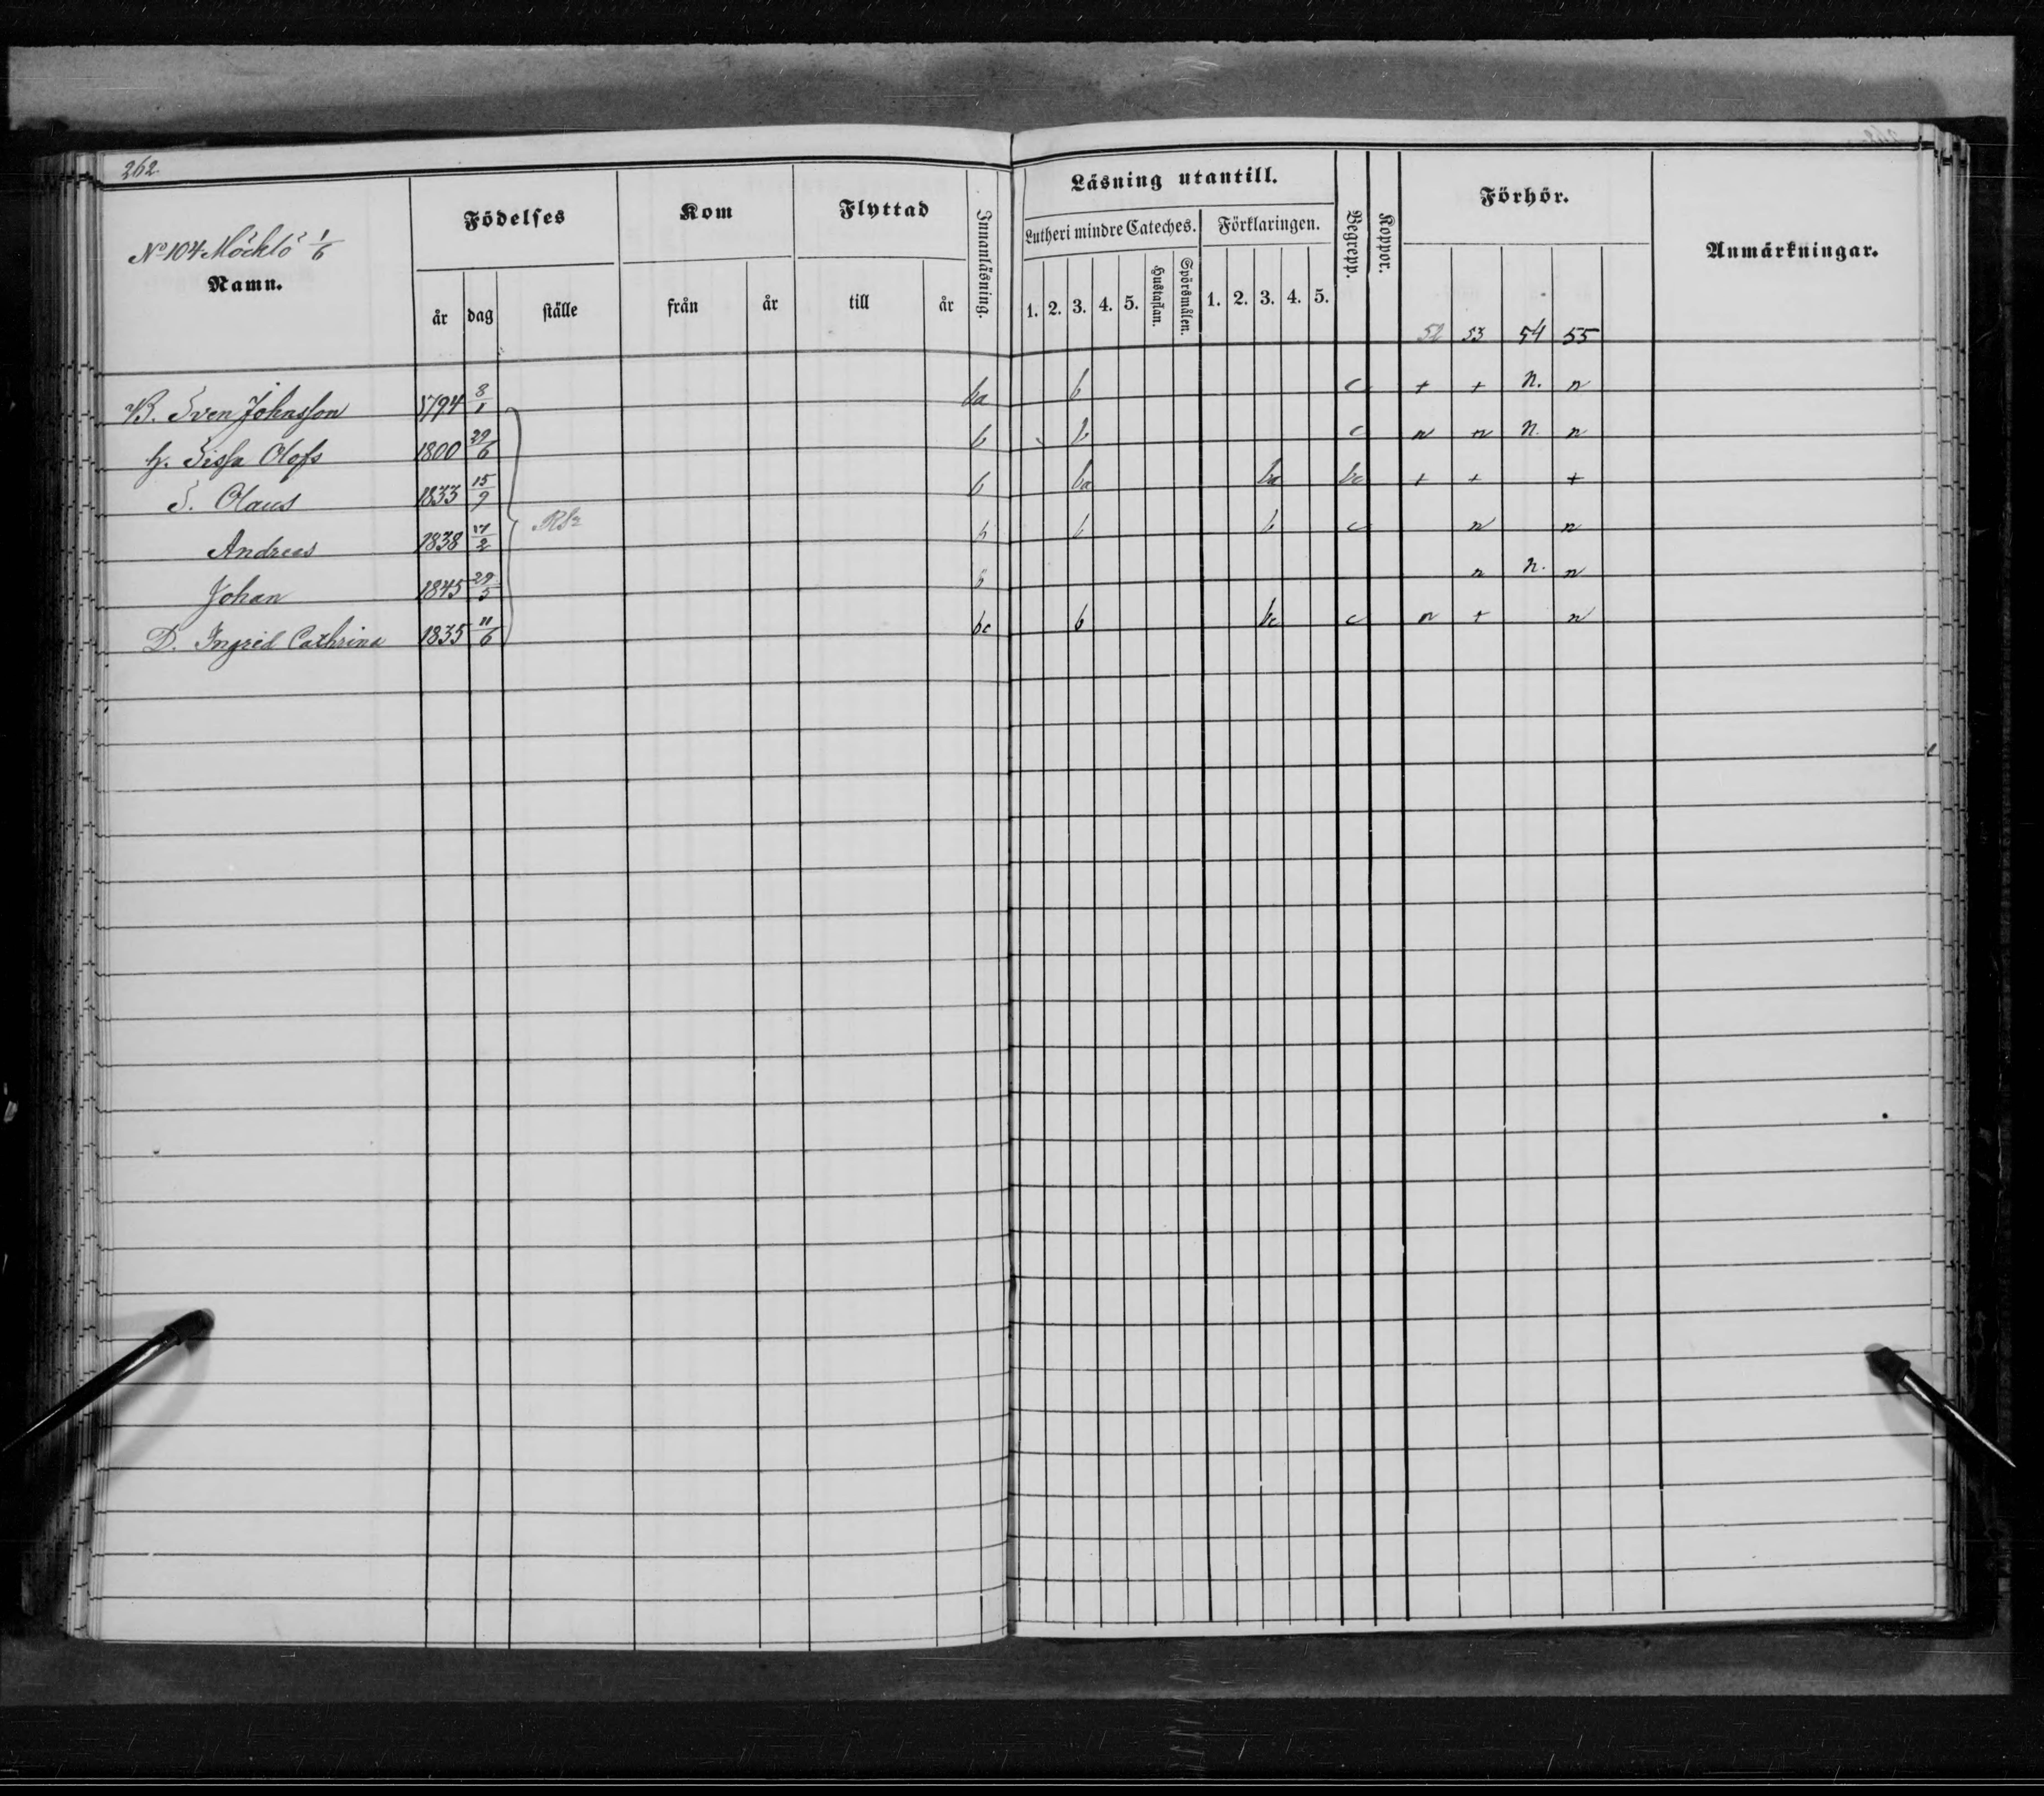 262
No 104 Möcklö 1/6
Namn.
Födelses
Kom
Flyttad
Innanläsning.
Läsning utantill.
Begrepp.
Koppor.
Förhör.
Anmärkningar.
Lutheri mindre Cateches.
Förklaringen.
år dag ställe från år till år
1. 2. 3. 4. 5. Hustaflan. Spörsmålen. 1. 2. 3. 4. 5.
52 53 54 55
B. Sven Johnsson 1794 8/1 ba b c + + n. n
H. Sissa Olofs 1800 29/6 b b c n n n. n
S. Olaus 1833 15/9 b ba ba bc + + +
Andreas 1838 17/2 b b b c n n
Johan 1845 29/5 b n n. n
D. Ingrid Cathrina 1835 11/6 bc b bc c n + n